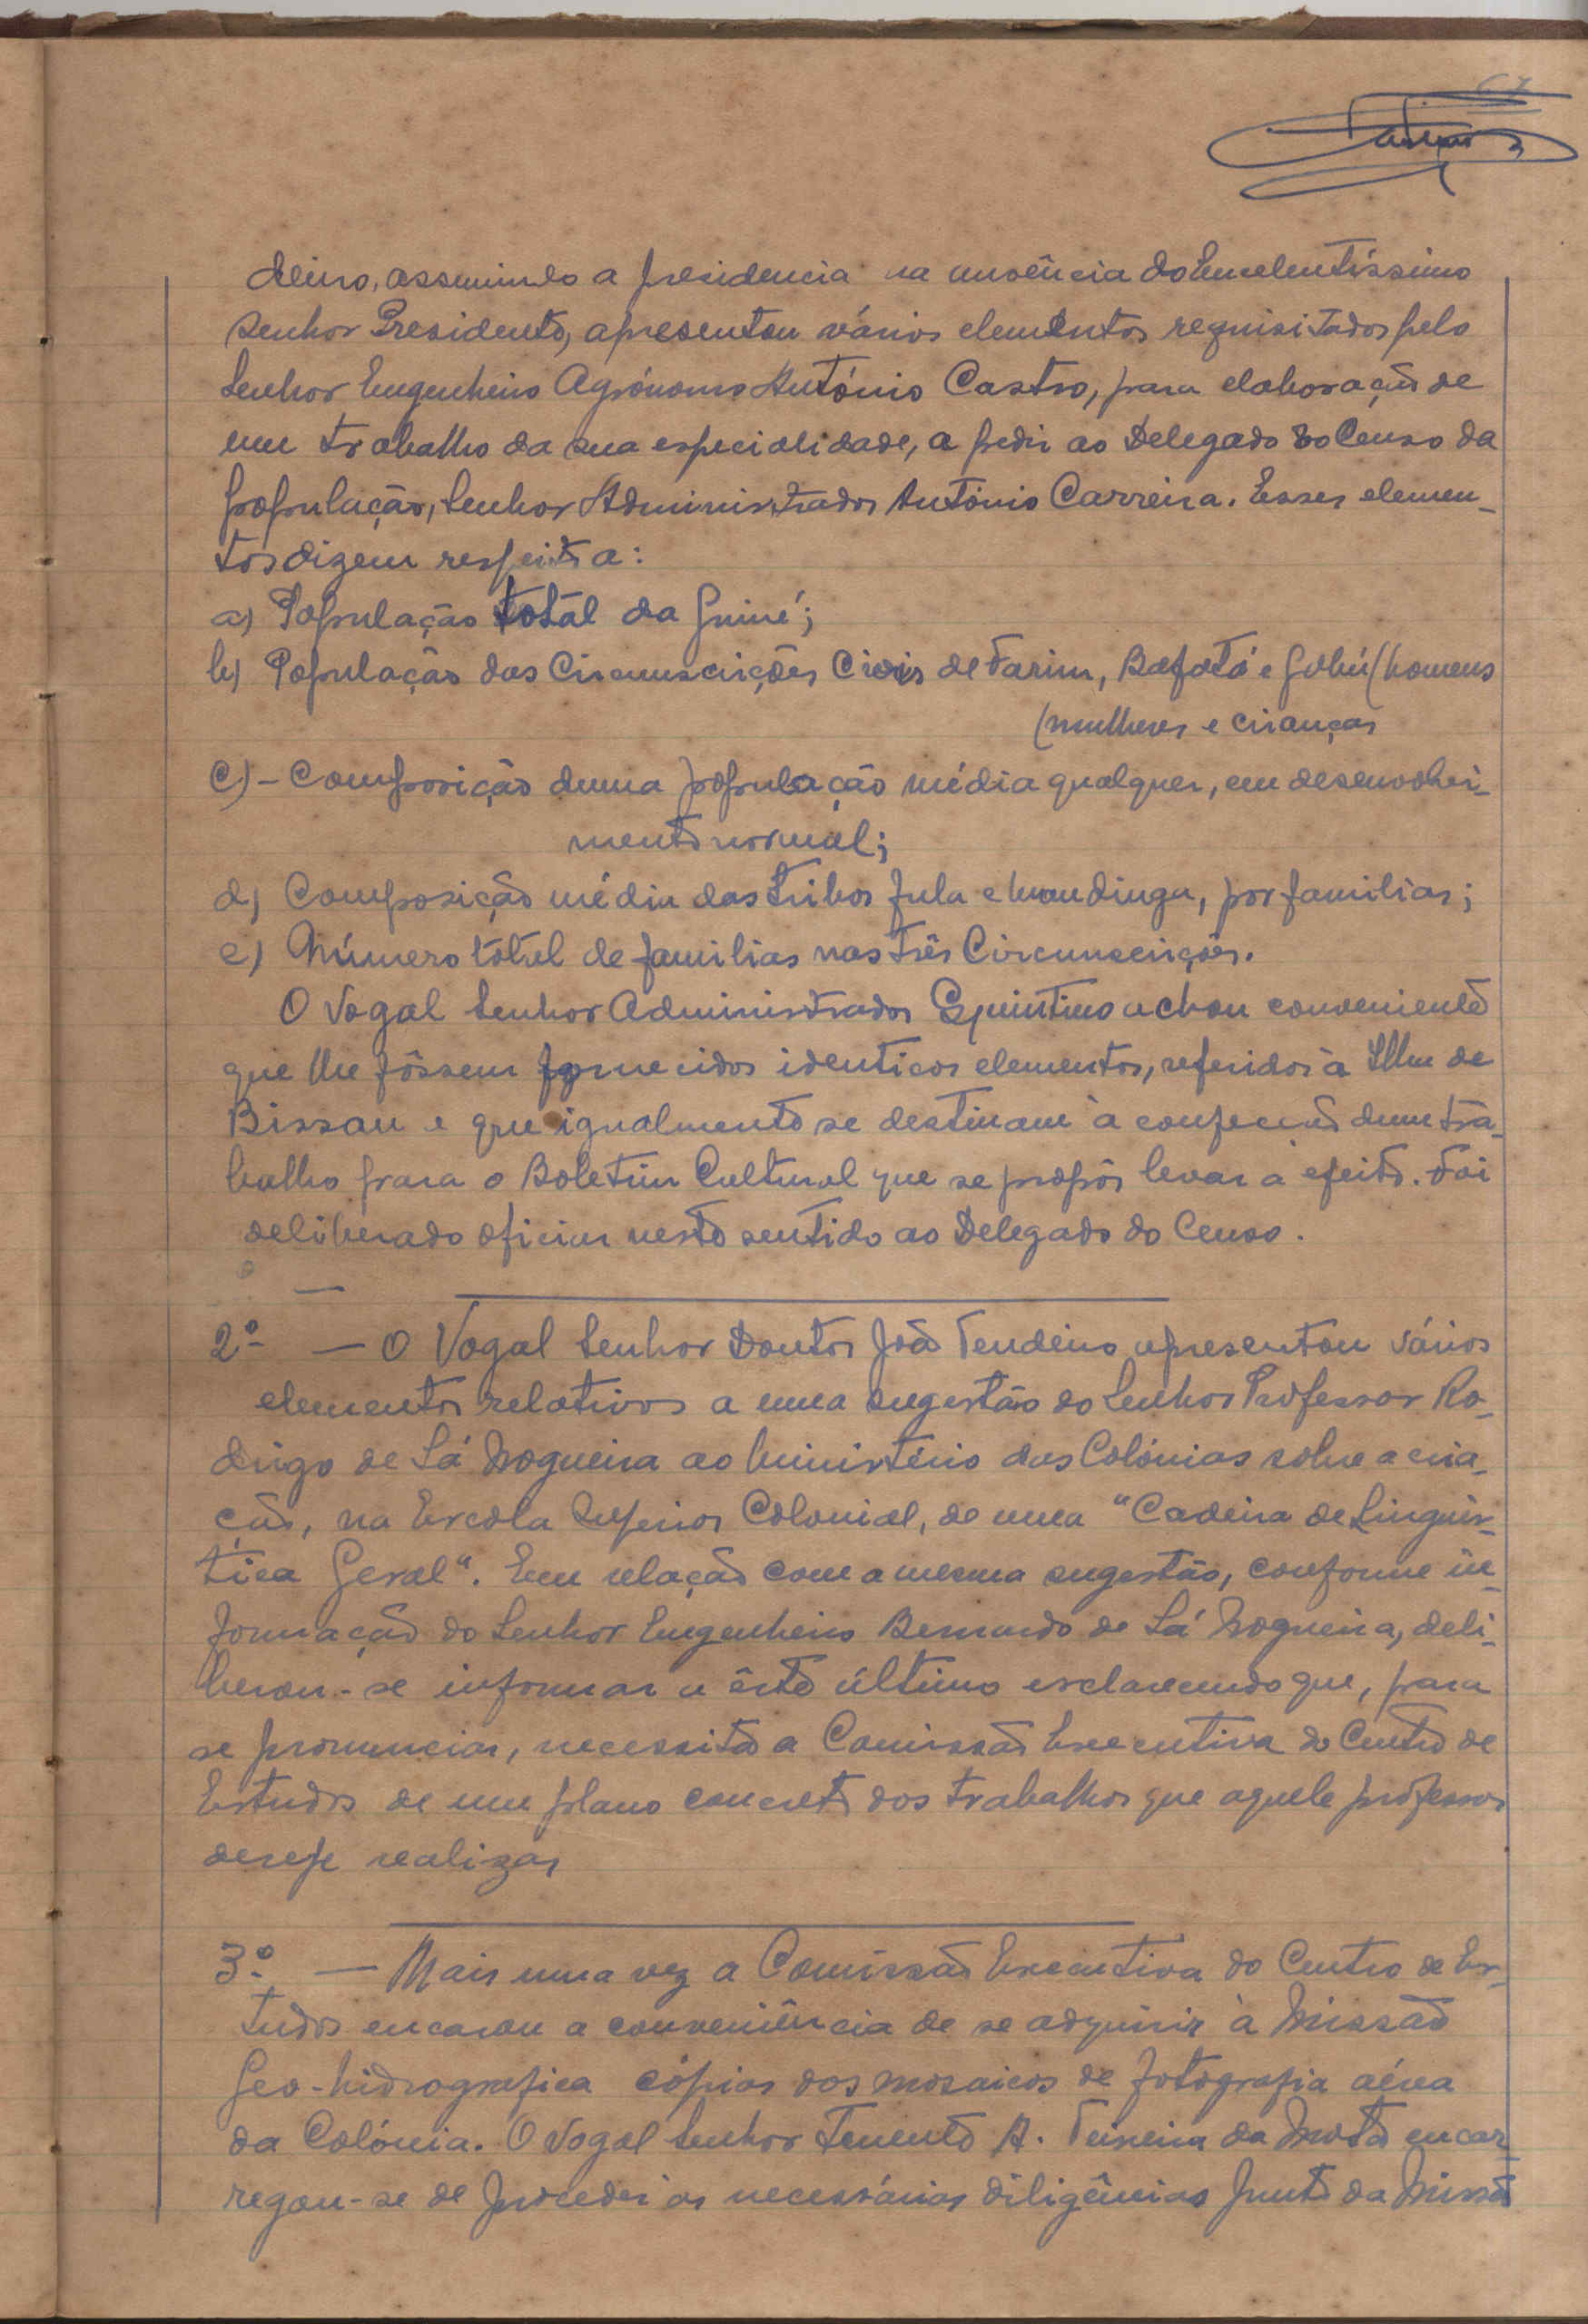 deiro, assumindo a presidencia na ausência do Excelentíssimo
Senhor Presidente, apresentou vários elementos requisitados pelo
Senhor Engenheiro Agrónomo António Castro, para elaboração de
um trabalho da sua especialidade, a pedir ao Delegado do Censo da
população, Senhor Administrador António Carreira. Esses elemen-
tos dizem respeito a:
a) População total da Guiné;
b) População das Circunscrições Civis de Farim, Bafatá e Gabú (homens
(mulheres e crianças
c) - Composição duma população média qualquer, em desenvolvi-
mento normal;
d) Composição média das tribos fula e mandinga, por familias;
e) Número total de familias nas três Circunscrições.
O Vogal Senhor Administrador Quintino achou conveniente
que lhe fôssem fornecidos identicos elementos, referidos à Ilha de
Bissau e que igualmente se destinam à confecção dum tra-
balho para o Boletim Cultural que se propôs levar a efeito. Foi
deliberado oficiar neste sentido ao Delegado do Censo.
2º - O Vogal Senhor Doutor João Tendeiro apresentou vários
elementos relativos a uma sugestão do Senhor Professor Ro-
drigo de Sá Nogueira ao Ministério das Colónias sobre a cria-
ção, na Escola Superior Colonial, de uma "Cadeira de Linguis-
tica Geral". Em relação com a mesma sugestão, conforme in-
formação do Senhor Engenheiro Bernardo de Sá Nogueira, deli-
berou-se informar a êste último esclarecendo que, para
se pronunciar, necessita a Comissão Executiva do Centro de
Estudos de um plano concreto dos trabalhos que aquele professor
deseje realizar
3º - Mais uma vez a Comissão Executiva do Centro de Es-
tudos encarou a conveniência de se adquirir à Missão
Geo-hidrografica cópias dos mosaicos de fotografia aérea
da Colónia. O Vogal Senhor Tenente A. Teixeira da Mota encar-
regou-se de proceder as necessárias diligências junto da Missão